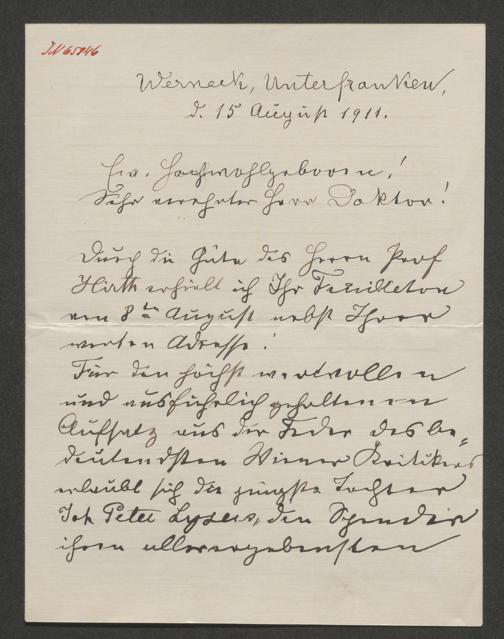 IN 65846
Werneck, Unterfranken,
d. 15 August 1911.
Ew. Hochwohlgeboren!
Sehr verehrter Herr Doktor!
Durch die Güte des Herrn Prof
Hirth erhielt ich Ihr Feuilleton
vom 8ten August nebst Ihrer
werten Adresse!
Für den höchst wertvollen
und ausführlich gehaltenen
Aufsatz aus der Feder des be=
deutendsten Wiener Kritikers
erlaubt sich die jüngste Tochter
Joh Peter Lysers, den Spender
ihren allerergebensten